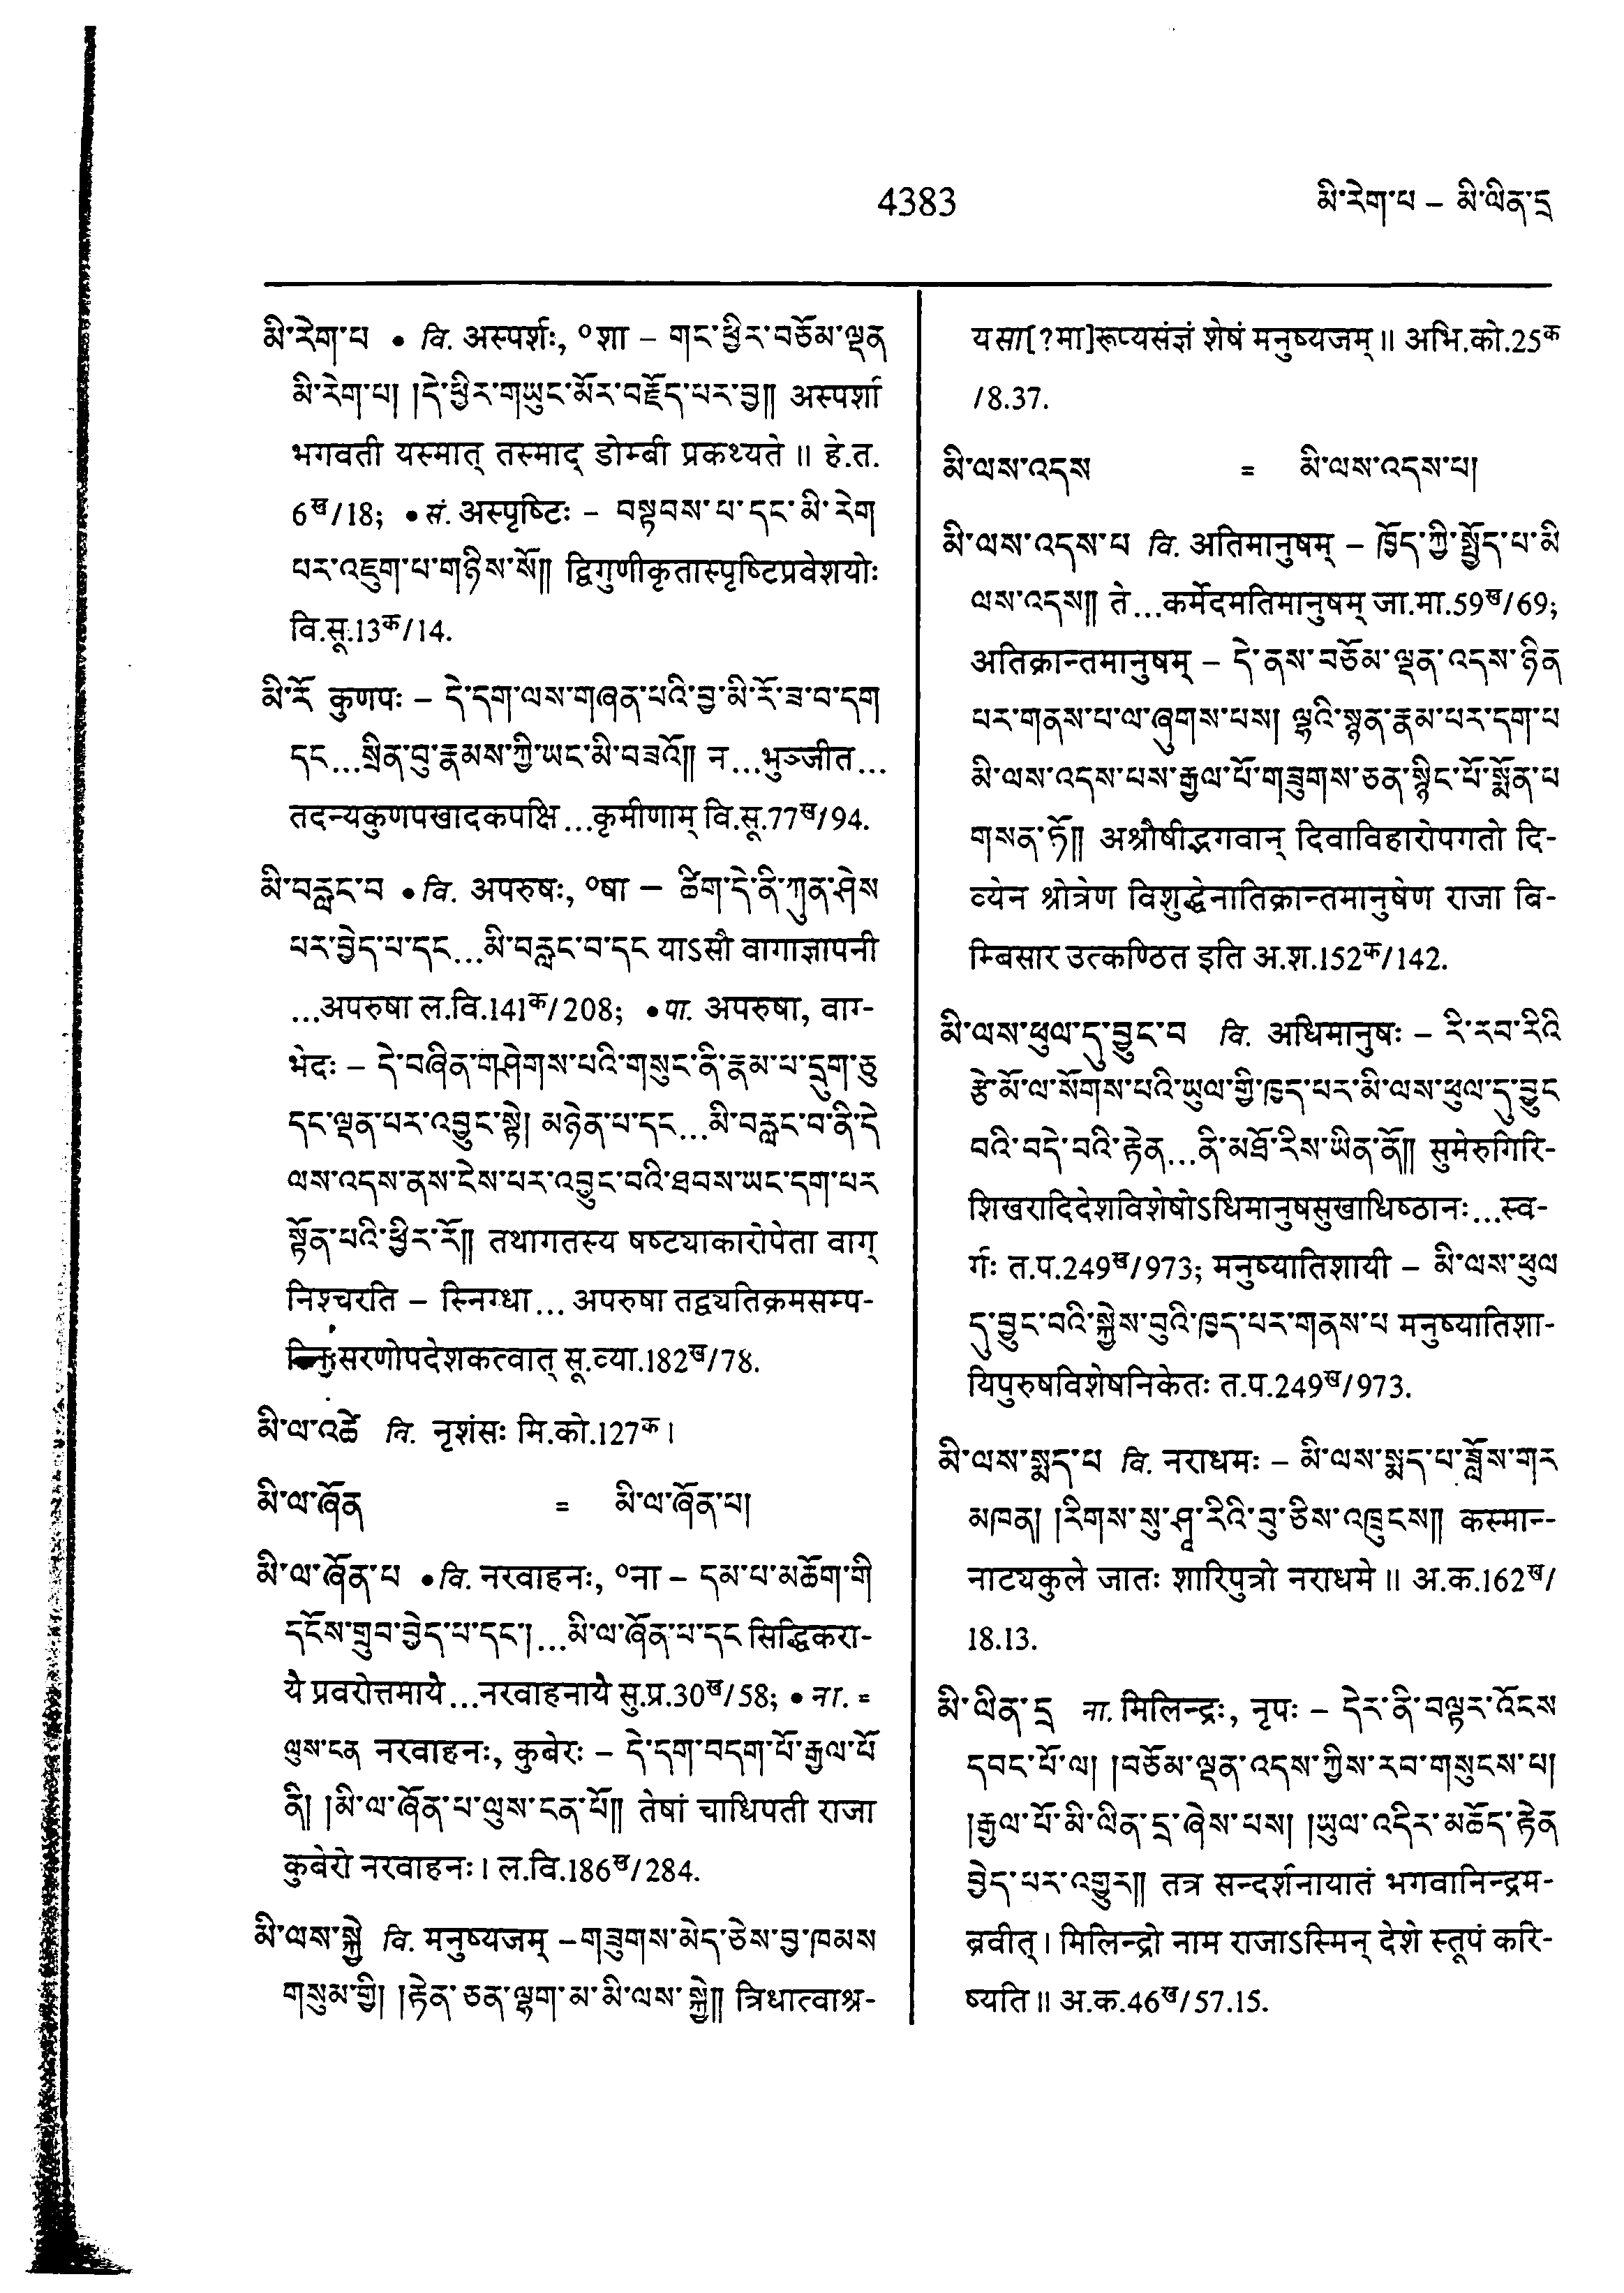 4383
མི་རེག་པ – མི་ལིན་དྲ
མི་རེག་པ • वि. अस्पर्शः, ०शा – གང་ཕྱིར་བཅོམ་ལྡན
མི་རེག་པ། །དེ་ཕྱིར་གཡུང་མོར་བརྗོད་པར་བྱ།། अस्पर्शा
भगवती यस्मात् तस्माद् डोम्बी प्रकथ्यते ॥ हे.त.
6ख/18; • सं. अस्पृष्टिः – བསྟབས་པ་དང་མི་རེག
པར་འཇུག་པ་གཉིས་སོ།། द्विगुणीकृतास्पृष्टिप्रवेशयोः
वि.सू.13क/14.
མི་རོ कुणपः – དེ་དག་ལས་གཞན་པའི་བྱ་མི་རོ་ཟ་བ་དག
དང...སྲིན་བུ་རྣམས་ཀྱི་ཡང་མི་བཟའོ།། न...भुञ्जीत...
तदन्यकुणपखादकपक्षि...कृमीणाम् वि.सू.77ख/94.
མི་བརླང་བ • वि. अपरुषः, ०षा – ཚིག་དེ་ནི་ཀུན་ཤེས
པར་བྱེད་པ་དང...མི་བརླང་བ་དང याऽसौ वागाज्ञापनी
...अपरुषा ल.वि.141क/208; • पा. अपरुषा, वाग्-
भेदः – དེ་བཞིན་གཤེགས་པའི་གསུང་ནི་རྣམ་པ་དྲུག་ཅུ
དང་ལྡན་པར་འབྱུང་སྟེ། མཉེན་པ་དང...མི་བརླང་བ་ནི་དེ
ལས་འདས་ནས་ངེས་པར་འབྱུང་བའི་ཐབས་ཡང་དག་པར
སྟོན་པའི་ཕྱིར་རོ།། तथागतस्य षष्ट्याकारोपेता वाग्
निश्चरति – स्निग्धा... अपरुषा तद्व्यतिक्रमसम्प-
न्निःसरणोपदेशकत्वात् सू.व्या.182ख/78.
མི་ལ་འཚེ वि. नृशंसः मि.को.127क।
མི་ལ་ཞོན = མི་ལ་ཞོན་པ།
མི་ལ་ཞོན་པ • वि. नरवाहनः, ०ना – དམ་པ་མཆོག་གི
དངོས་གྲུབ་བྱེད་པ་དང་།...མི་ལ་ཞོན་པ་དང सिद्धिकरा-
यै प्रवरोत्तमायै...नरवाहनायै सु.प्र.30ख/58; • ना. =
ལུས་ངན नरवाहनः, कुबेरः – དེ་དག་བདག་པོ་རྒྱལ་པོ
ནི། །མི་ལ་ཞོན་པ་ལུས་ངན་པོ།། तेषां चाधिपती राजा
कुबेरो नरवाहनः। ल.वि.186ख/284.
མི་ལས་སྐྱེ वि. मनुष्यजम् –གཟུགས་མེད་ཅེས་བྱ་ཁམས
གསུམ་གྱི། །རྟེན་ཅན་ལྷག་མ་མི་ལས་སྐྱེ།། त्रिधात्वाश्र-
यसा[?मा]रूप्यसंज्ञं शेषं मनुष्यजम्॥ अभि.को.25क
/8.37.
མི་ལས་འདས = མི་ལས་འདས་པ།
མི་ལས་འདས་པ वि. अतिमानुषम् – ཁྱོད་ཀྱི་སྤྱོད་པ་མི
ལས་འདས།། ते...कर्मेदमतिमानुषम् जा.मा.59ख/69;
अतिक्रान्तमानुषम् – དེ་ནས་བཅོམ་ལྡན་འདས་ཉིན
པར་གནས་པ་ལ་ཞུགས་པས། ལྷའི་སྙན་རྣམ་པར་དག་པ
མི་ལས་འདས་པས་རྒྱལ་པོ་གཟུགས་ཅན་སྙིང་པོ་སྨོན་པ
གསན་ཏོ།། अश्रौषीद्भगवान् दिवाविहारोपगतो दि-
व्येन श्रोत्रेण विशुद्धेनातिक्रान्तमानुषेण राजा बि-
म्बिसार उत्कण्ठित इति अ.श.152क/142.
མི་ལས་ཕུལ་དུ་བྱུང་བ वि. अधिमानुषः – རི་རབ་རིའི
རྩེ་མོ་ལ་སོགས་པའི་ཡུལ་གྱི་ཁྱད་པར་མི་ལས་ཕུལ་དུ་བྱུང
བའི་བདེ་བའི་རྟེན...ནི་མཐོ་རིས་ཡིན་ནོ།། सुमेरुगिरि-
शिखरादिदेशविशेषोऽधिमानुषसुखाधिष्ठानः...स्व-
र्गः त.प.249ख/973; मनुष्यातिशायी – མི་ལས་ཕུལ
དུ་བྱུང་བའི་སྐྱེས་བུའི་ཁྱད་པར་གནས་པ मनुष्यातिशा-
यिपुरुषविशेषनिकेतः त.प.249ख/973.
མི་ལས་སྨད་པ वि. नराधमः – མི་ལས་སྨད་པ་ཟློས་གར
མཁན། །རིགས་སུ་ཤཱ་རིའི་བུ་ཅིས་འཁྲུངས།། कस्मान्-
नाट्यकुले जातः शारिपुत्रो नराधमे॥ अ.क.162ख/
18.13.
མི་ལིན་དྲ ना. मिलिन्द्रः, नृपः – དེར་ནི་བལྟར་འོངས
དབང་པོ་ལ། །བཅོམ་ལྡན་འདས་ཀྱིས་རབ་གསུངས་པ།
།རྒྱལ་པོ་མི་ལིན་དྲ་ཞེས་པས། །ཡུལ་འདིར་མཆོད་རྟེན
བྱེད་པར་འགྱུར།། तत्र सन्दर्शनायातं भगवानिन्द्रम-
ब्रवीत्। मिलिन्द्रो नाम राजाऽस्मिन् देशे स्तूपं करि-
ष्यति॥ अ.क.46ख/57.15.